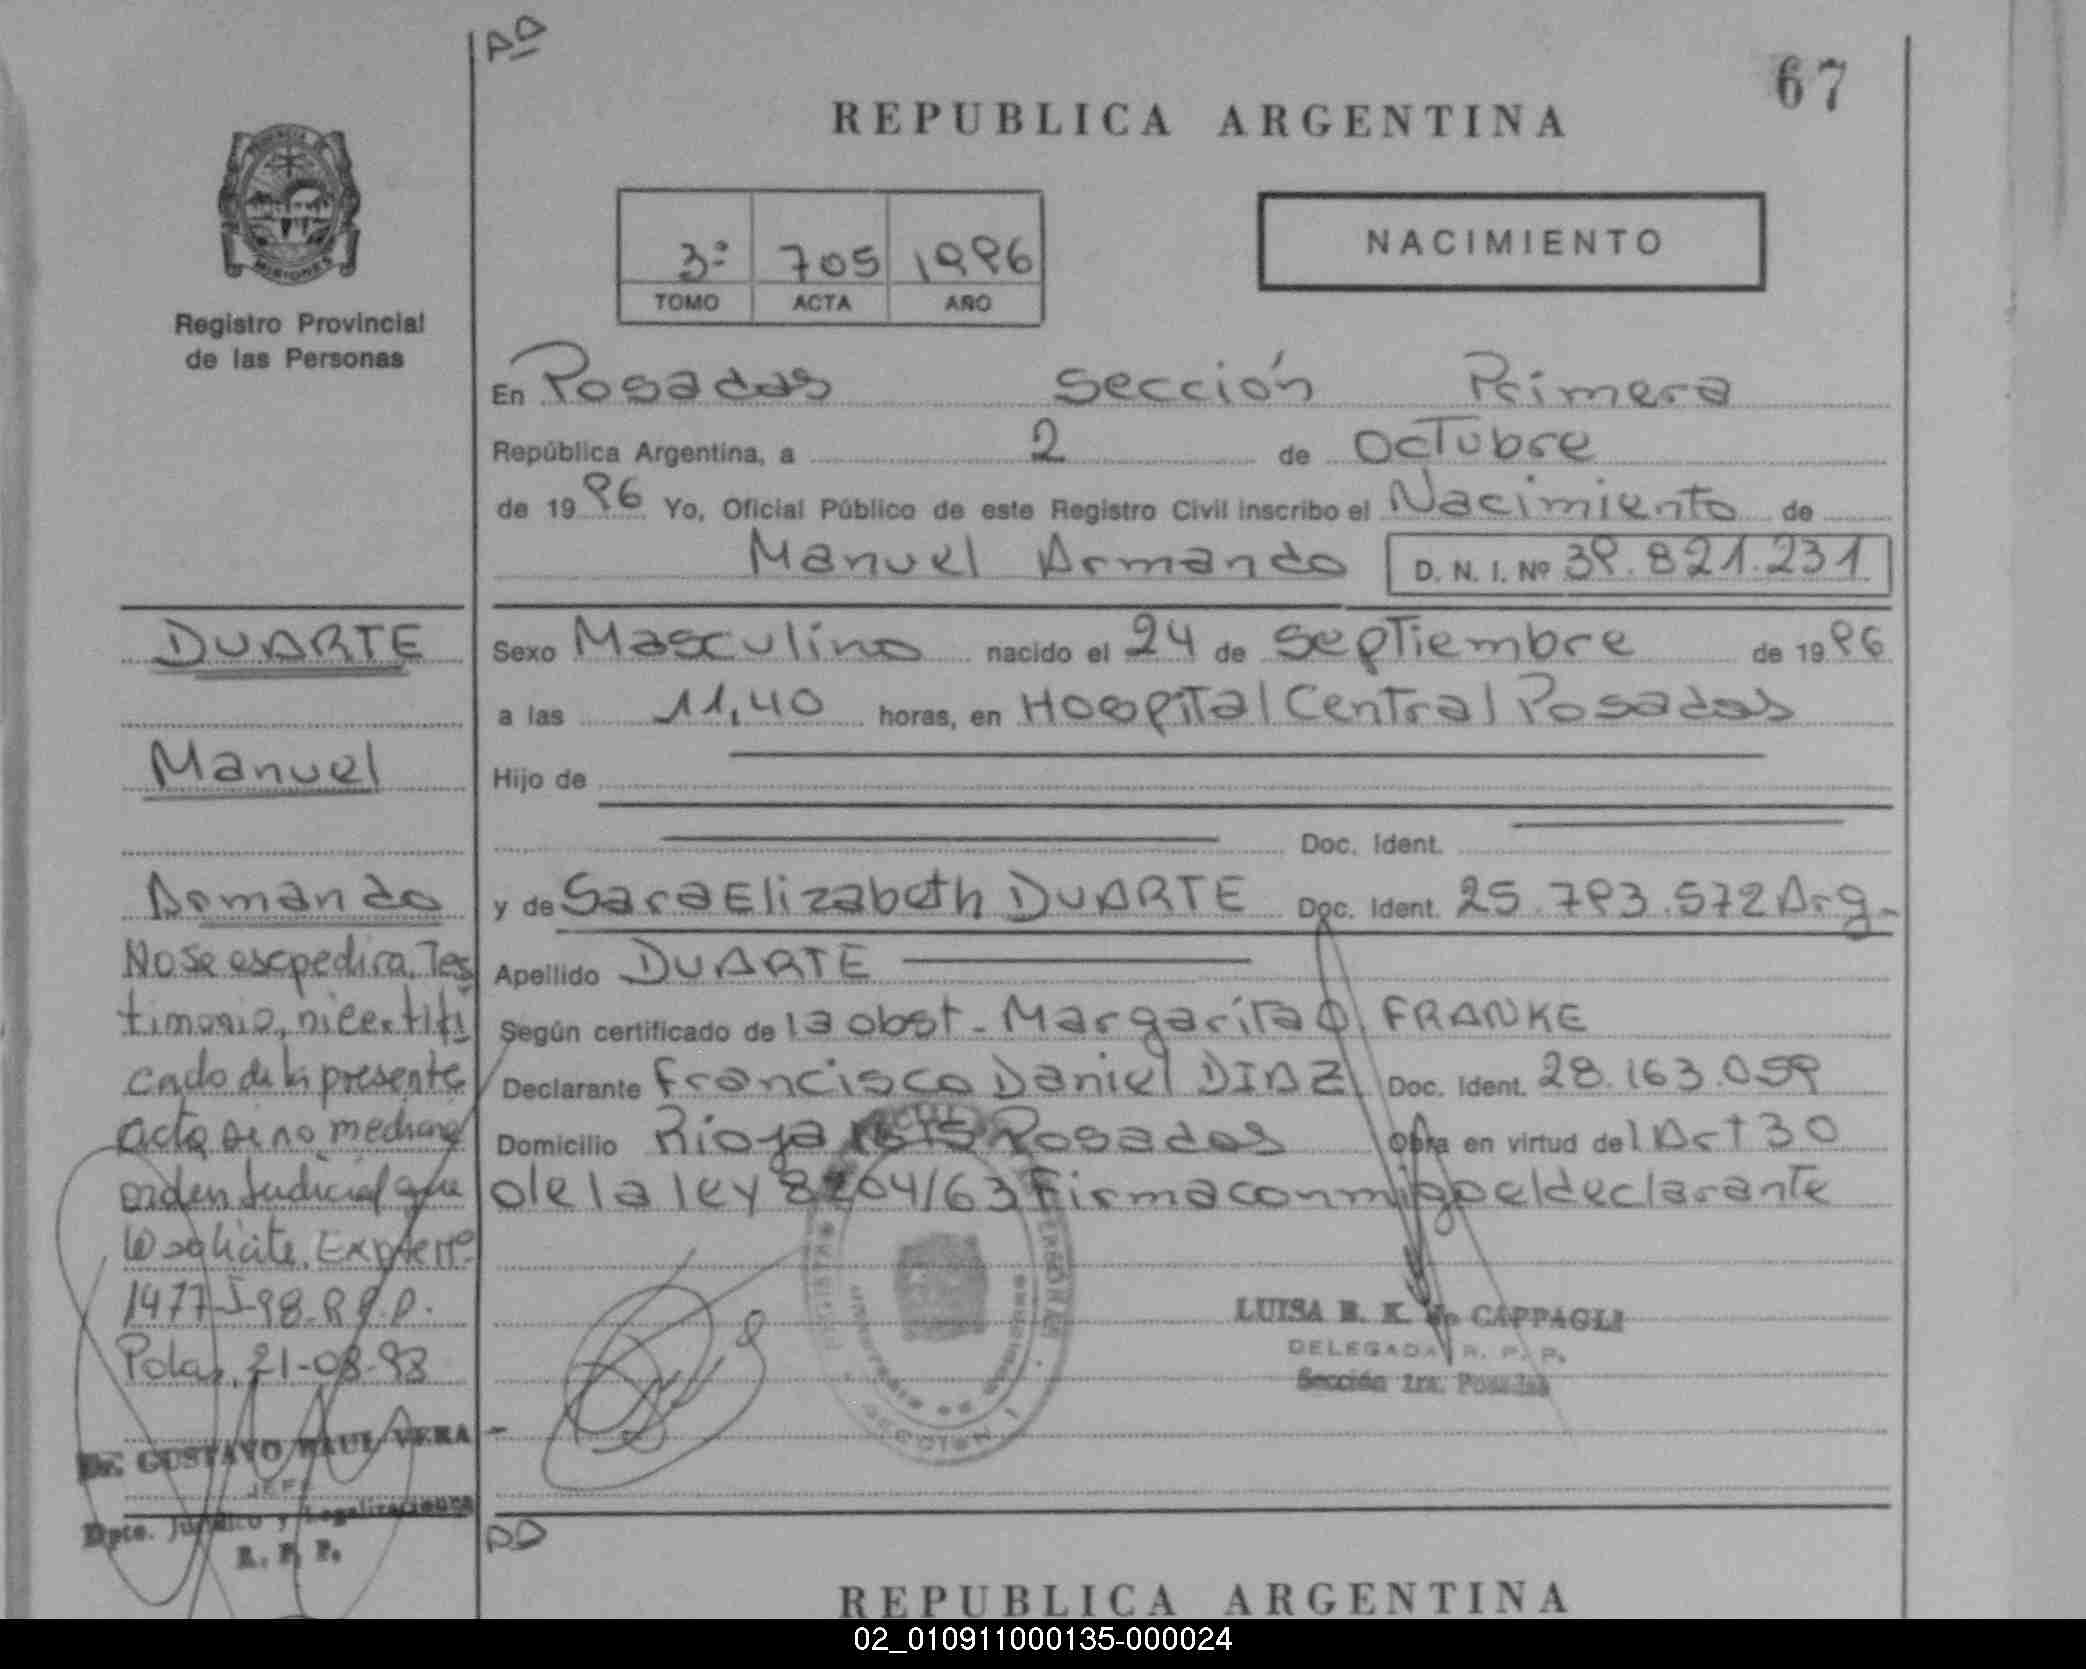 AD
67
REPUBLICA ARGENTINA
3º 705 1996
TOMO ACTA AÑO
NACIMIENTO
Registro Provincial
de las Personas
En Posadas Sección Primera
República Argentina, a 2 de Octubre
de 1996 Yo, Oficial Público de este Registro Civil inscribo el Nacimiento de
Manuel Armando D. N. I. Nº 39.821.231
DUARTE
Manuel
Armando
Sexo Masculino nacido el 24 de Septiembre de 1996
a las 11,40 horas, en Hospital Central Posadas
Hijo de
Doc. Ident.
y de Sara Elizabeth DUARTE Doc. Ident. 25.793.572 Arg.
Apellido DUARTE
Según certificado de la obst. Margarita FRANKE
Declarante Francisco Daniel DIAZ Doc. Ident. 28.163.059
Domicilio Rioja Posadas Obra en virtud del Art 30
de la ley 8204/63 Firma conmigo el declarante
No se escpedira, Tes
timonio, ni certifi
cado de la presente
acta si no mediane
orden Judicial que
lo solicite. Expte nº
1477-J-98-R.P.P.
Pdas, 21-08-98
DR. GUSTAVO RAUL VERA
JEFE
Dpto. Jurídico y Legalizaciones
R. P. P.
SECCION 1
LUISA E. K. de CAPPAGLI
DELEGADA R. P. P.
Sección 1ra. Posadas
AD
REPUBLICA ARGENTINA
02_010911000135-000024